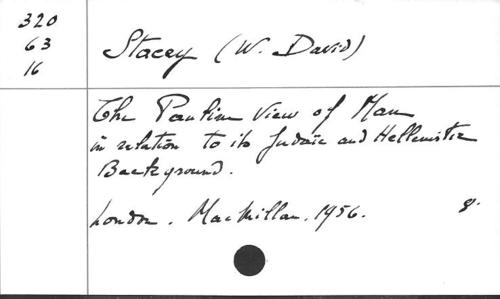 320
63
16
Stacey (W. David)
The Pauline View of Man
in relation to its Judaic and Hellenistic
Background.
London. MacMillan. 1956. 8.